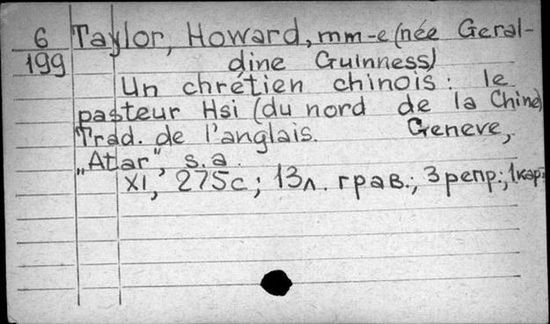 6 Taylor, Howard, mm-e (née Geral-
199 dine Guinness)
Un chrétien chinois: le
pasteur Hsi (du nord de la Chine)
Trad. de l'anglais. Geneve,
„Atar", s.a.
XI, 275с; 13л. грав.; 3 репр.; 1 кар.